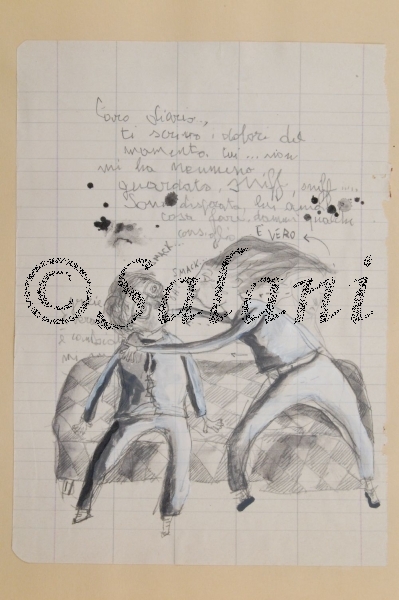 Caro diario,
ti scrivo i dolori del
momento. Lui ... non
mi ha nemmeno
guardata. Sniff, sniff ....
Sono disperata, lui
cosa fare, dammi qualche
consiglio
È VERO
SMACK
SMACK
©Salani